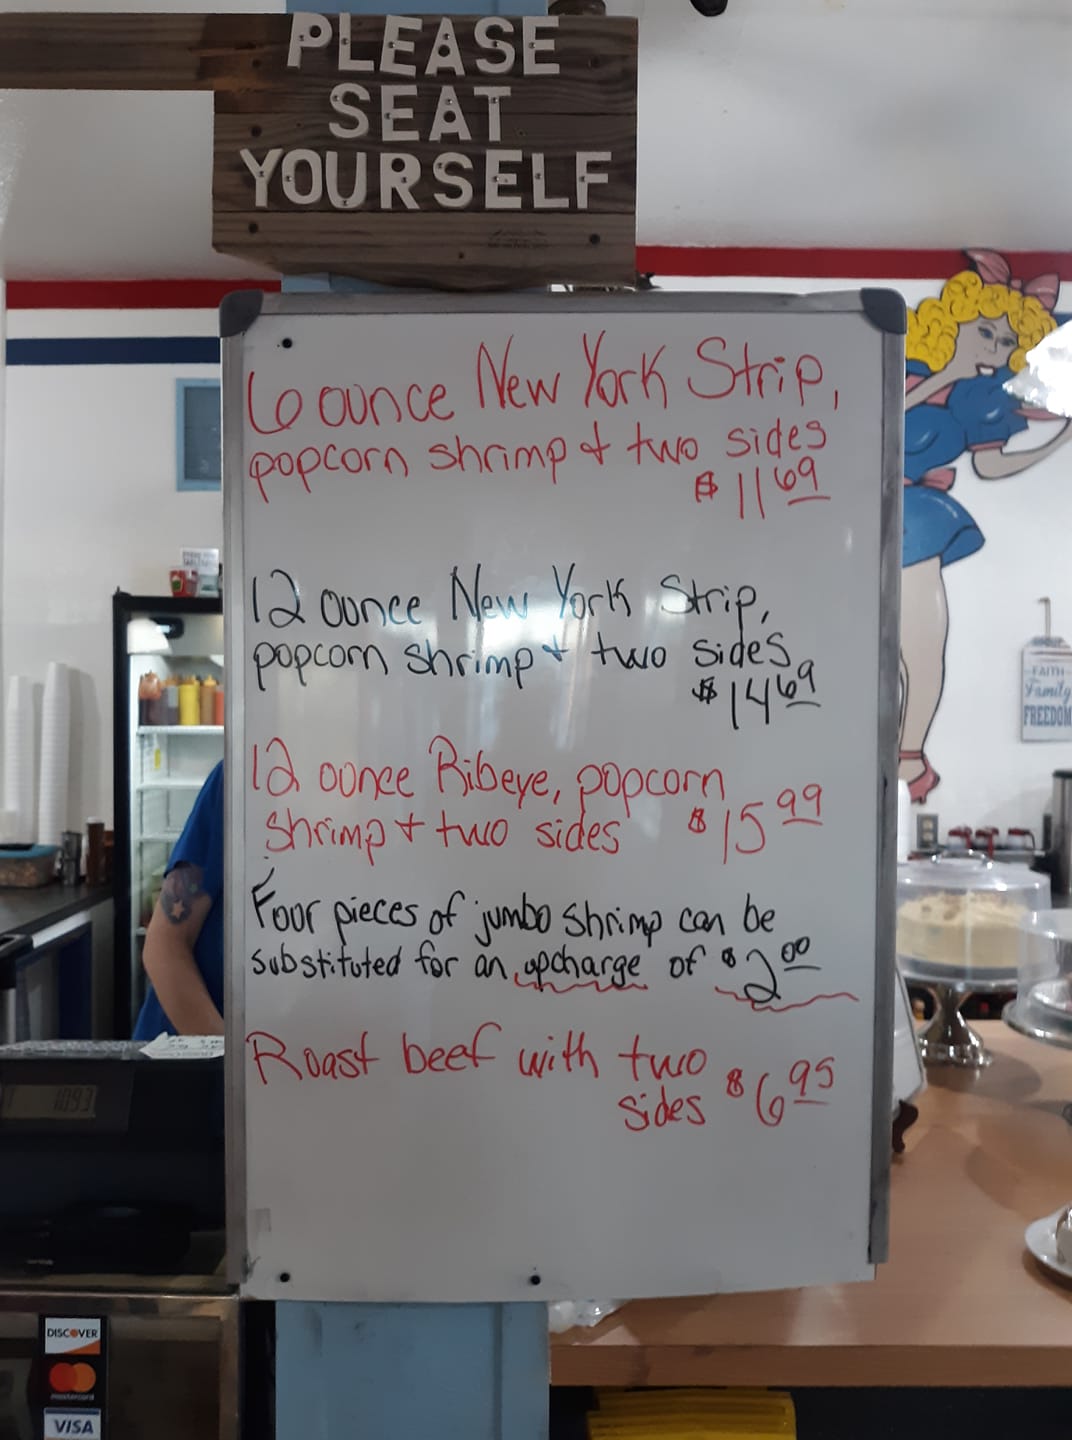 PLEASE
SEAT
YOURSELF
6 ounce New York Strip,
popcorn shrimp + two sides
$11.69
12 ounce New York Strip,
popcorn shrimp + two sides
$14.69
12 ounce Ribeye, popcorn
shrimp + two sides $15.99
Four pieces of jumbo shrimp can be
substituted for an upcharge of $2.00
Roast beef with two
sides $6.95
FAITH
Family
FREEDOM
1093
DISCOVER
mastercard
VISA